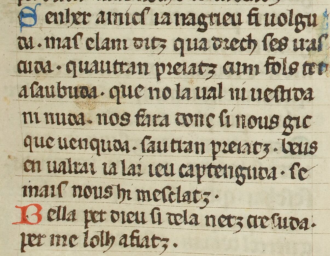 Senher amics ia nagrieu si volgu
da. mas elam ditz qua drech ses iras
cuda. quautran preiatz cum fols ten
asaubuda. que no la val ni vestida
ni nuda. nos fara donc si nous gic
que venquda. sautran preiatz. beus
en valrai ia lai ieu captenguda. se
mais nous hi mesclatz.
Bella per dieu si dela netz cresuda.
per me lolh afiatz.